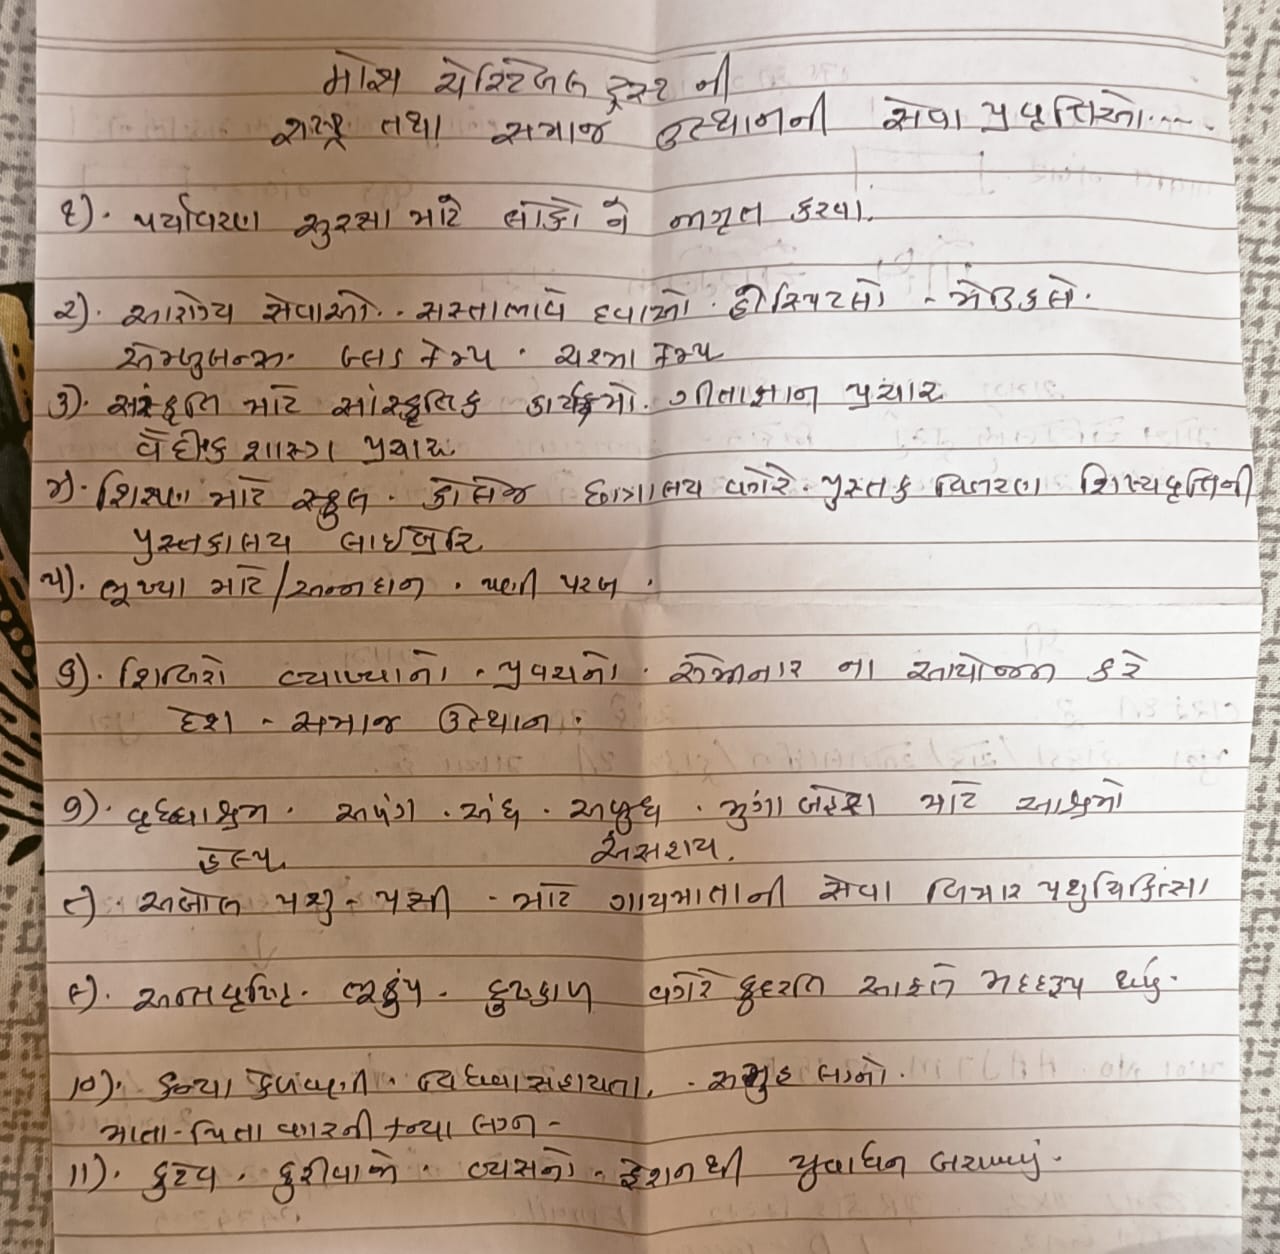 મોક્ષ ચેરિટેબલ ટ્રસ્ટ ની
રાષ્ટ્ર તથા સમાજ ઉત્થાનની સેવા પ્રવૃત્તિઓ....
૧). પર્યાવરણ સુરક્ષા માટે લોકો ને જાગૃત કરવા.
૨). આરોગ્ય સેવાઓ.. સસ્તાભાવે દવાઓ. હોસ્પિટલો - મેડિકલો.
એમ્બ્યુલન્સ. બ્લડ કેમ્પ. ચશ્મા કેમ્પ
૩). સંસ્કૃતિ માટે સાંસ્કૃતિક કાર્યક્રમો. ગીતાજ્ઞાન પ્રચાર
વૈદીક શાસ્ત્રો પ્રચાર
૪). શિક્ષણ માટે સ્કુલ. કોલેજ છાત્રાલય વગેરે. પુસ્તક વિતરણ શિષ્યવૃત્તિની
પુસ્તકાલય લાઇબ્રેરિ
૫). ભૂખ્યા માટે/અન્નદાન. પાણી પરબ.
૬). શિબિરો વ્યાખ્યાનો. પ્રવચનો. સેમીનાર ના આયોજન કરે
દેશ - સમાજ ઉત્થાન.
૭). વૃદ્ધાશ્રમ. અપંગ. અંધ. અબુધ. મુંગા બહેરા માટે આશ્રમો
૮). અબોલ પશુ-પક્ષી - માટે ગાયમાતાની સેવા બિમાર પશુચિકિત્સા
૯). અનાવૃષ્ટિ. ભૂકંપ. દુષ્કાળ વગેરે કુદરતિ આફતે મદદરૂપ થવું.
૧૦). કન્યા કેળવણી. વિધવા સહાયતા. - સમુહ લગ્નો.
માતા-પિતા વગરની કન્યા લગ્ન -
૧૧). કુટેવ. કુરીવાજો. વ્યસનો. ફેશનથી યુવાધન બચાવવું.